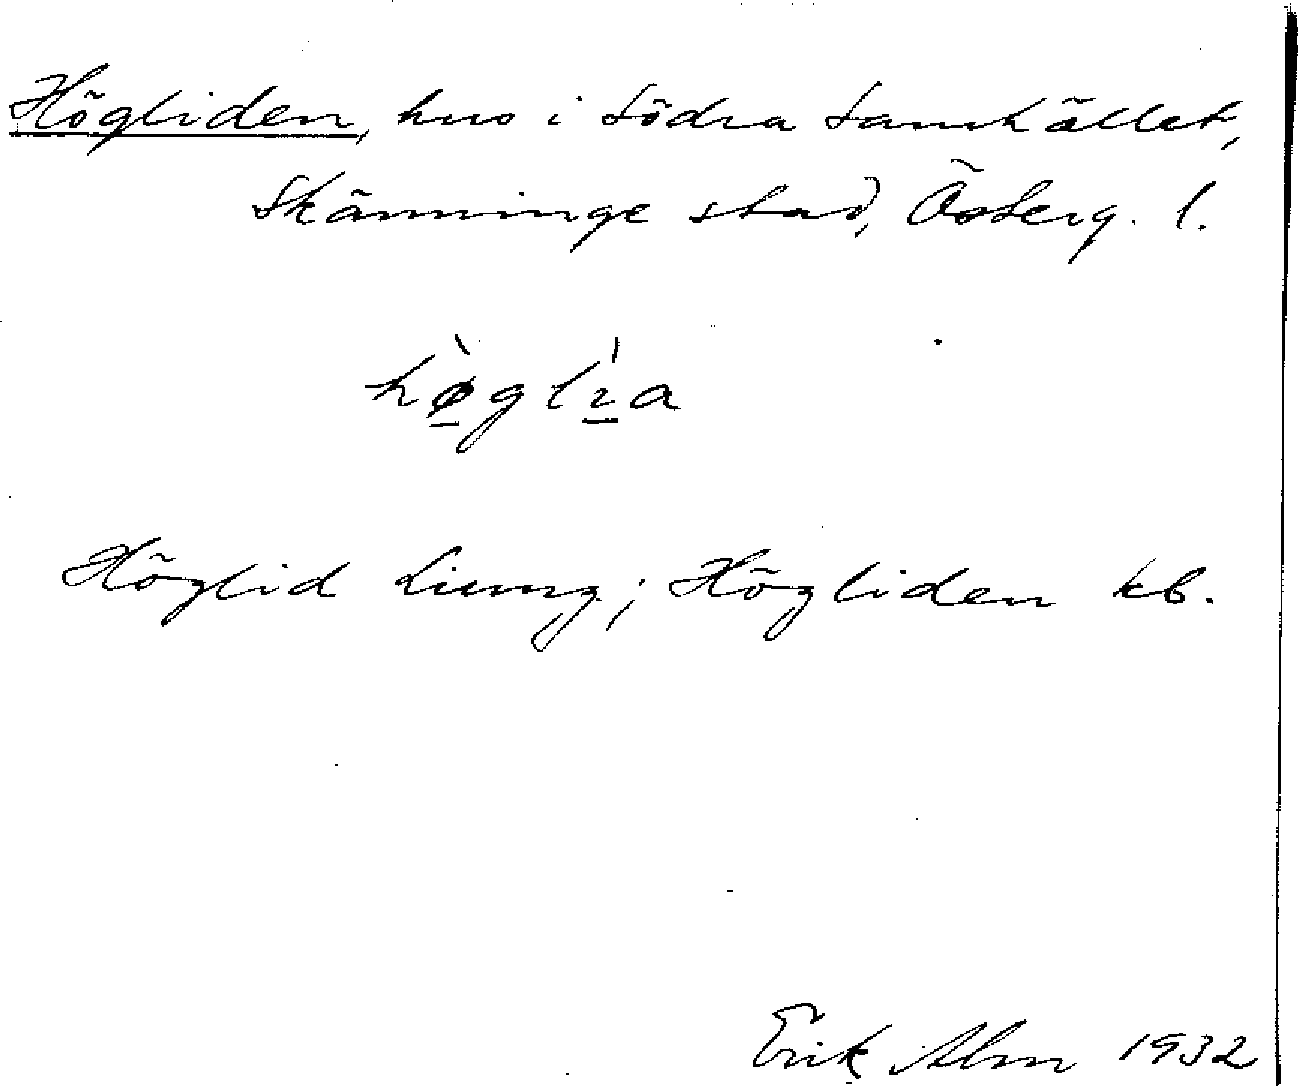 Högliden, hus i södra samhället,
Skänninge stad, Österg. l.
hø̱̀glı̱́a
Höglid Liung; Högliden kb.
Erik Alm 1932